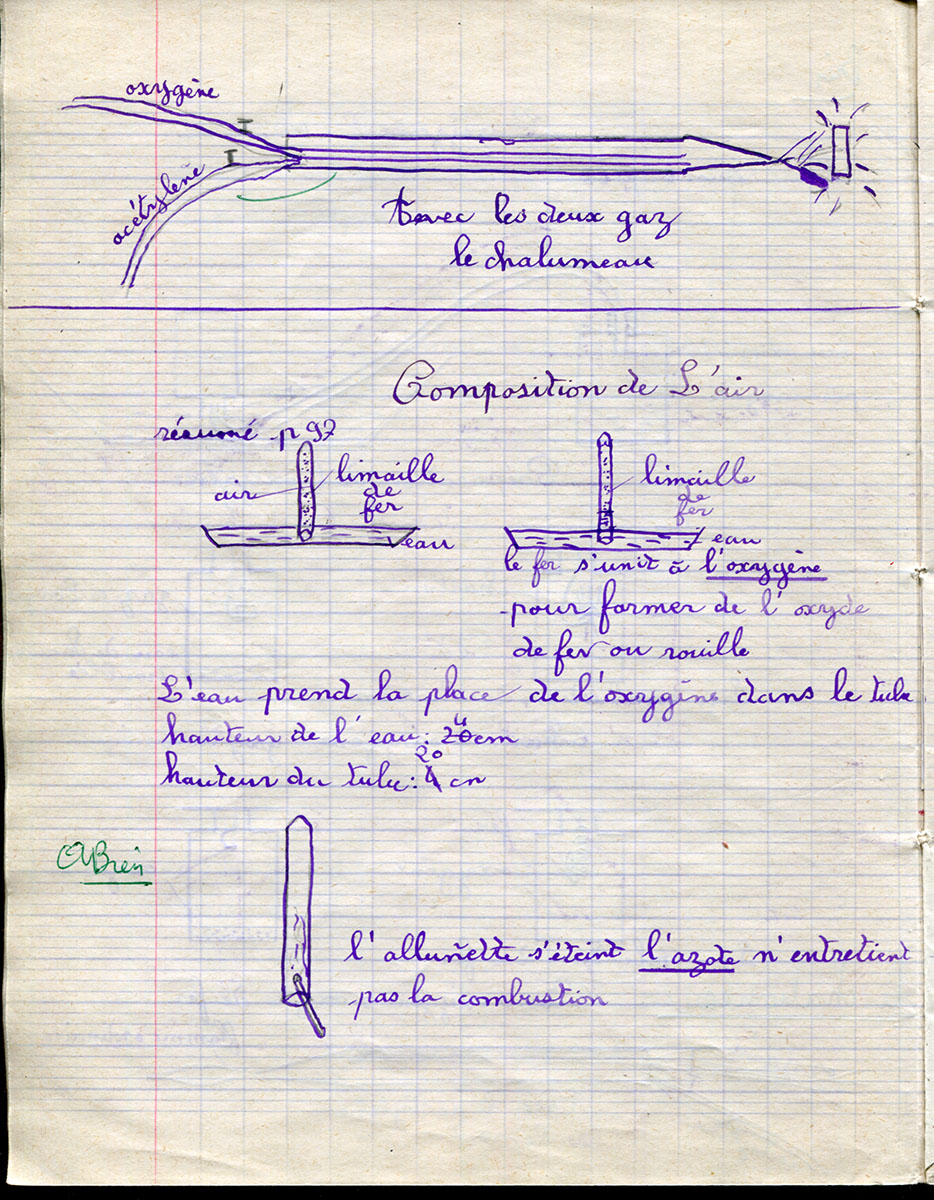 oxygène
acétylène
avec les deux gaz
le chalumeau
Composition de L'air
résumé p 97
air
limaille
de
fer
eau
limaille
de
fer
eau
le fer s'unit à l'oxygène
pour former de l'oxyde
de fer ou rouille
L'eau prend la place de l'oxygène dans le tube
hauteur de l'eau: 4 cm
hauteur du tube: 20 cm
Bien
l'allumette s'éteint l'azote n'entretient
pas la combustion